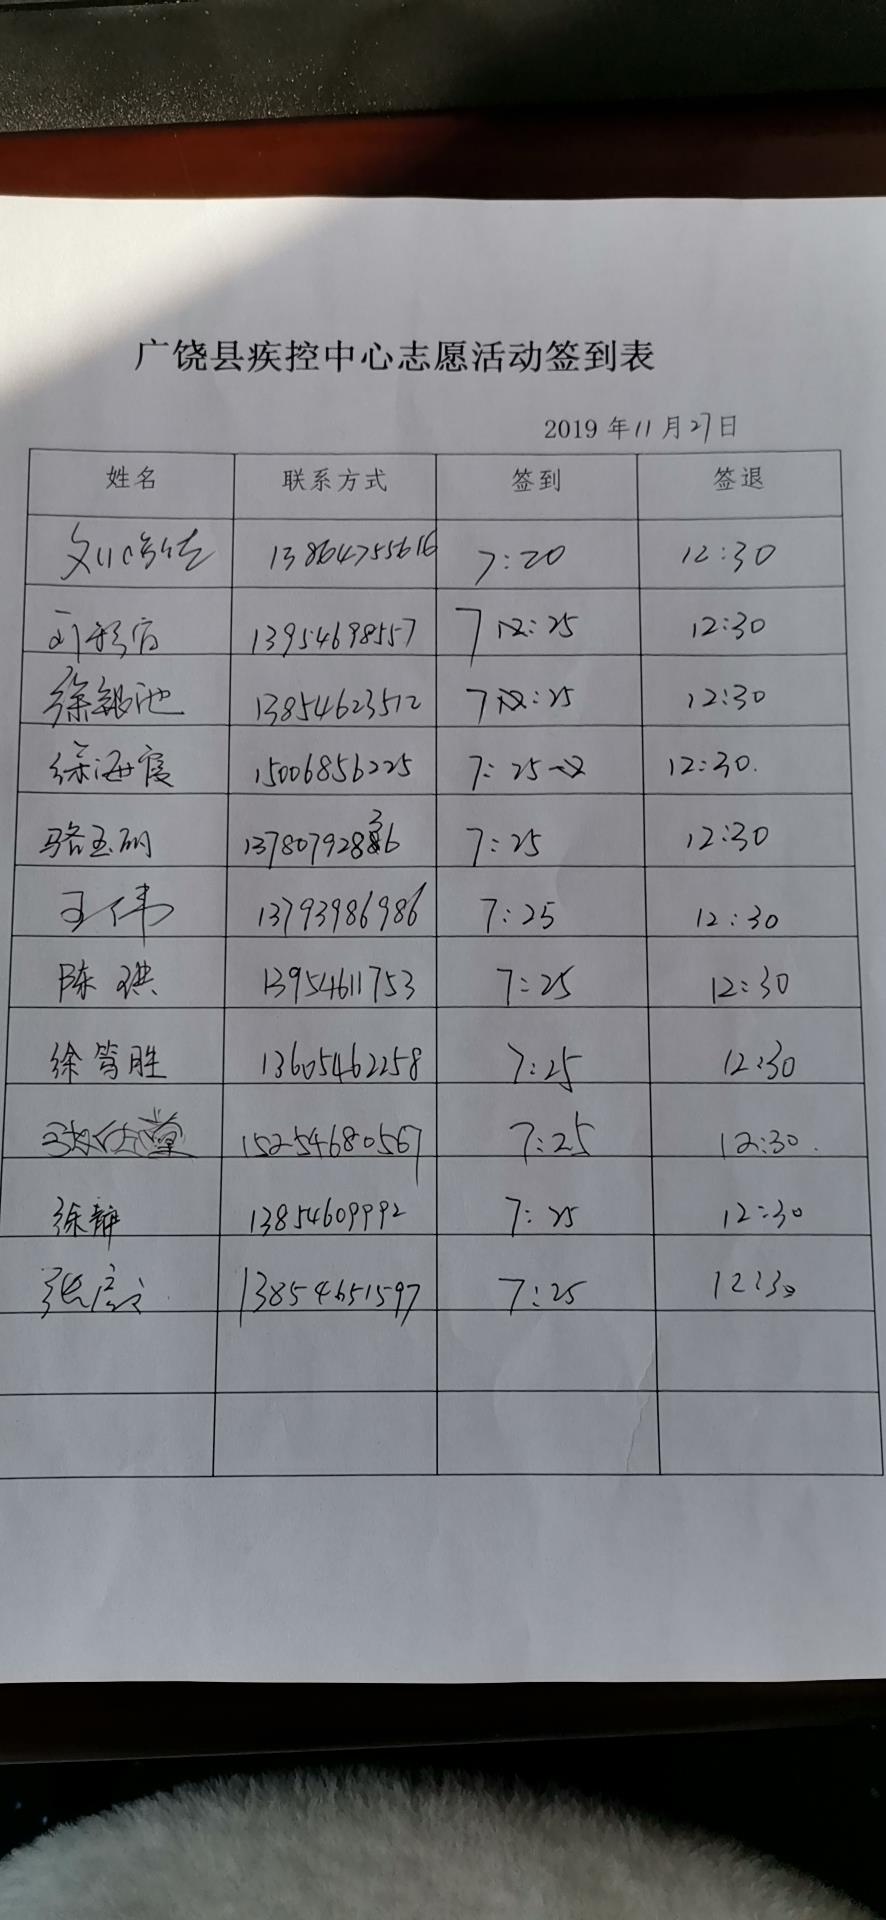 广饶县疾控中心志愿活动签到表
2019年11月27日
姓名 联系方式 签到 签退
13864755616 7:20 12:30
13954698557 7:25 12:30
徐银池 13854623512 7:25 12:30
徐海霞 15006856225 7:25 12:30.
骆玉 7:25 12:30
王伟 13793986986 7:25 12:30
陈琪 13954611753 7:25 12:30
徐笃胜 13605462258 7:25 12:30
15254680567 7:25 12:30.
徐静 13854609992 7:25 12:30
张 13854651597 7:25 12:30